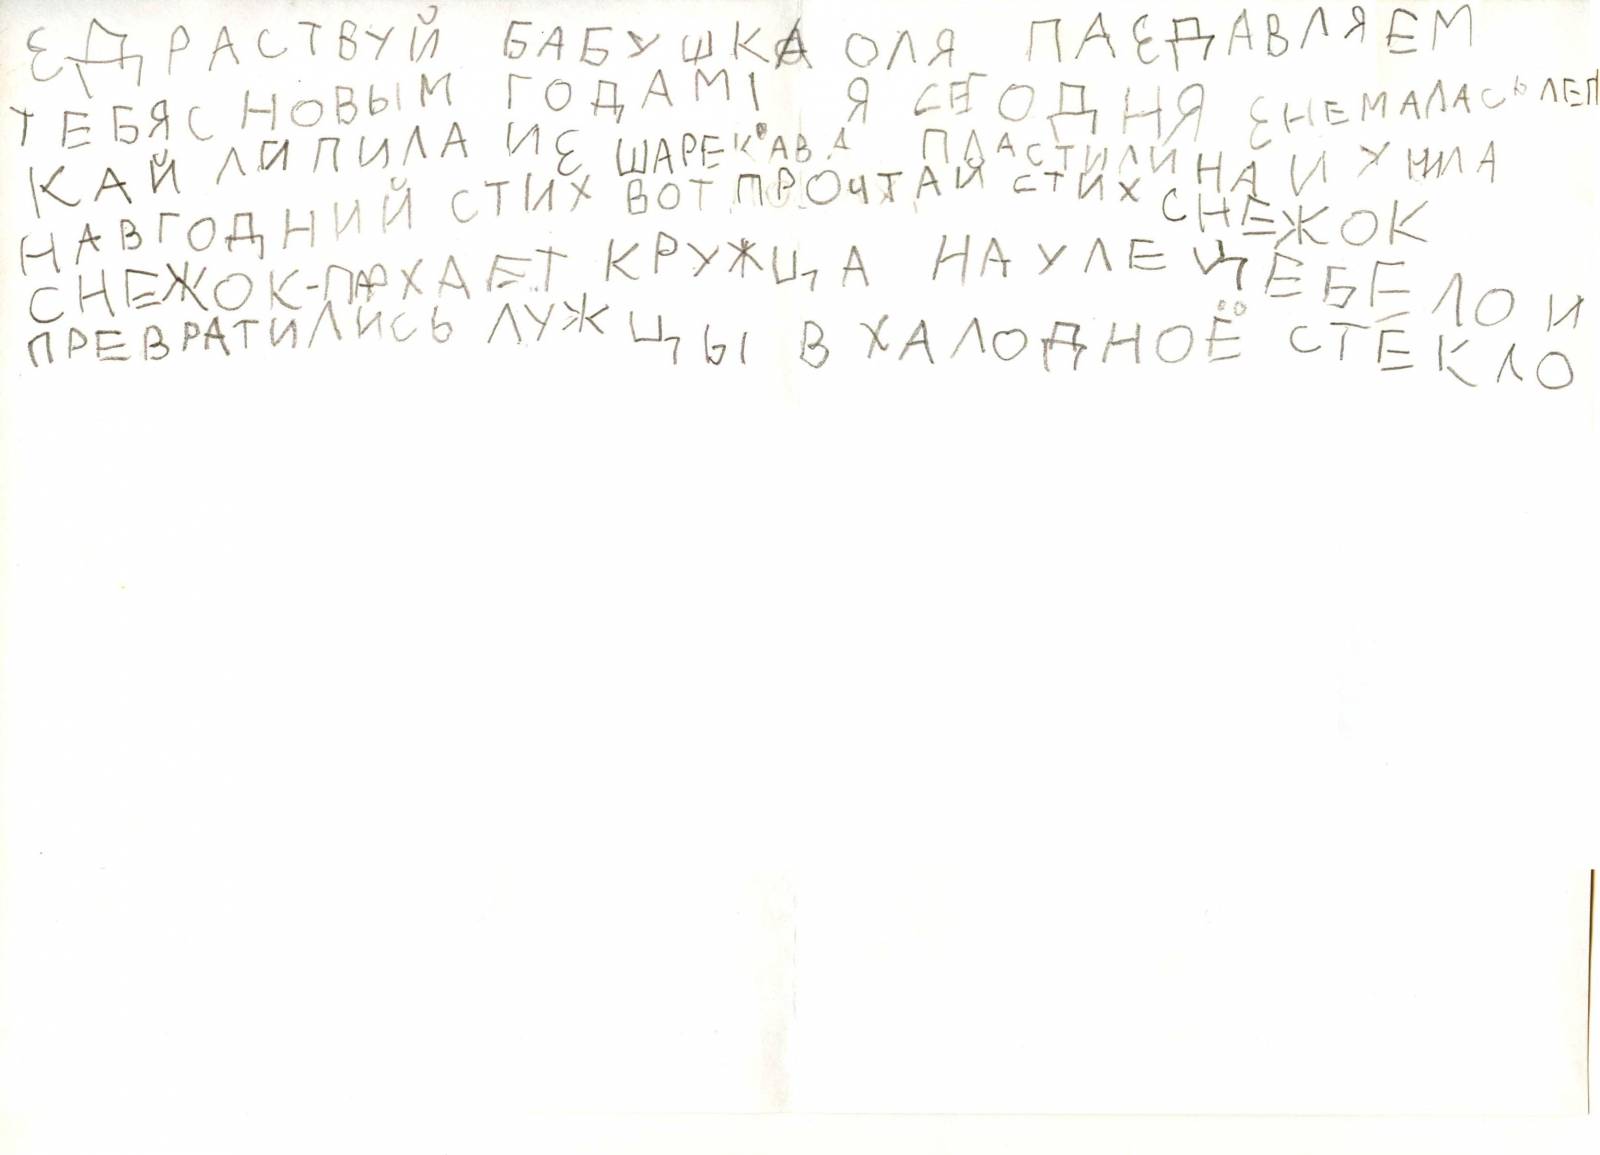 ЗДРАСТВУЙ БАБУШКА ОЛЯ ПАЗДАВЛЯЕМ
ТЕБЯ С НОВЫМ ГОДАМ! Я СЕГОДНЯ ЗНЕМАЛАСЬ ЛЕП
КАЙ ЛИПИЛА ИЗ ШАРЕКАВА ПЛАСТИЛИНА И УЧИЛА
НАВГОДНИЙ СТИХ ВОТ ПРОЧТАЙ СТИХ СНЕЖОК
СНЕЖОК-ПАРХАЕТ КРУЖЦА НА УЛЕЦЕ БЕЛО И
ПРЕВРАТИЛИСЬ ЛУЖЦЫ В ХАЛОДНОЁ СТЕКЛО